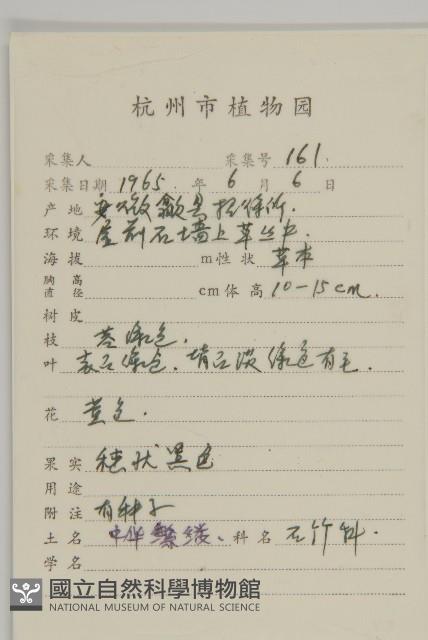 杭州市植物园
采集人 采集号 161.
采集日期 1965. 年 6 月 6 日
产地 安徽歙县招待所.
环境 屋前石墙上草丛中.
海拔 m性状 草本
胸高直径 cm体高 10-15cm.
树皮
枝 茎绿色.
叶 表面绿色. 背面淡绿色有毛.
花 黄色.
果实 穗状黑色
用途
附注 有种子
土名 中华繁缕、科名 石竹科.
学名
國立自然科學博物館
NATIONAL MUSEUM OF NATURAL SCIENCE